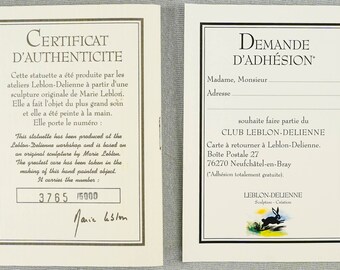 CERTIFICAT
D'AUTHENTICITE
Cette statuette a été produite par les
ateliers Leblon-Delienne à partir d'une
sculpture originale de Marie Leblon.
Elle a fait l'objet du plus grand soin
et a été peinte à la main.
Elle porte le numéro :
This statuette has been produced at the
Leblon-Delienne workshop and is based on
an original sculpture by Marie Leblon.
The greatest care has been taken in the
making of this hand painted object.
It carries the number :
3765 15000
Marie Leblon
DEMANDE
D'ADHÉSION*
Madame, Monsieur
Adresse
souhaite faire partie du
CLUB LEBLON-DELIENNE
Carte à retourner à Leblon-Delienne.
Boîte Postale 27
76270 Neufchâtel-en-Bray
(*Adhésion totalement gratuite).
LEBLON-DELIENNE
Sculpture - Création